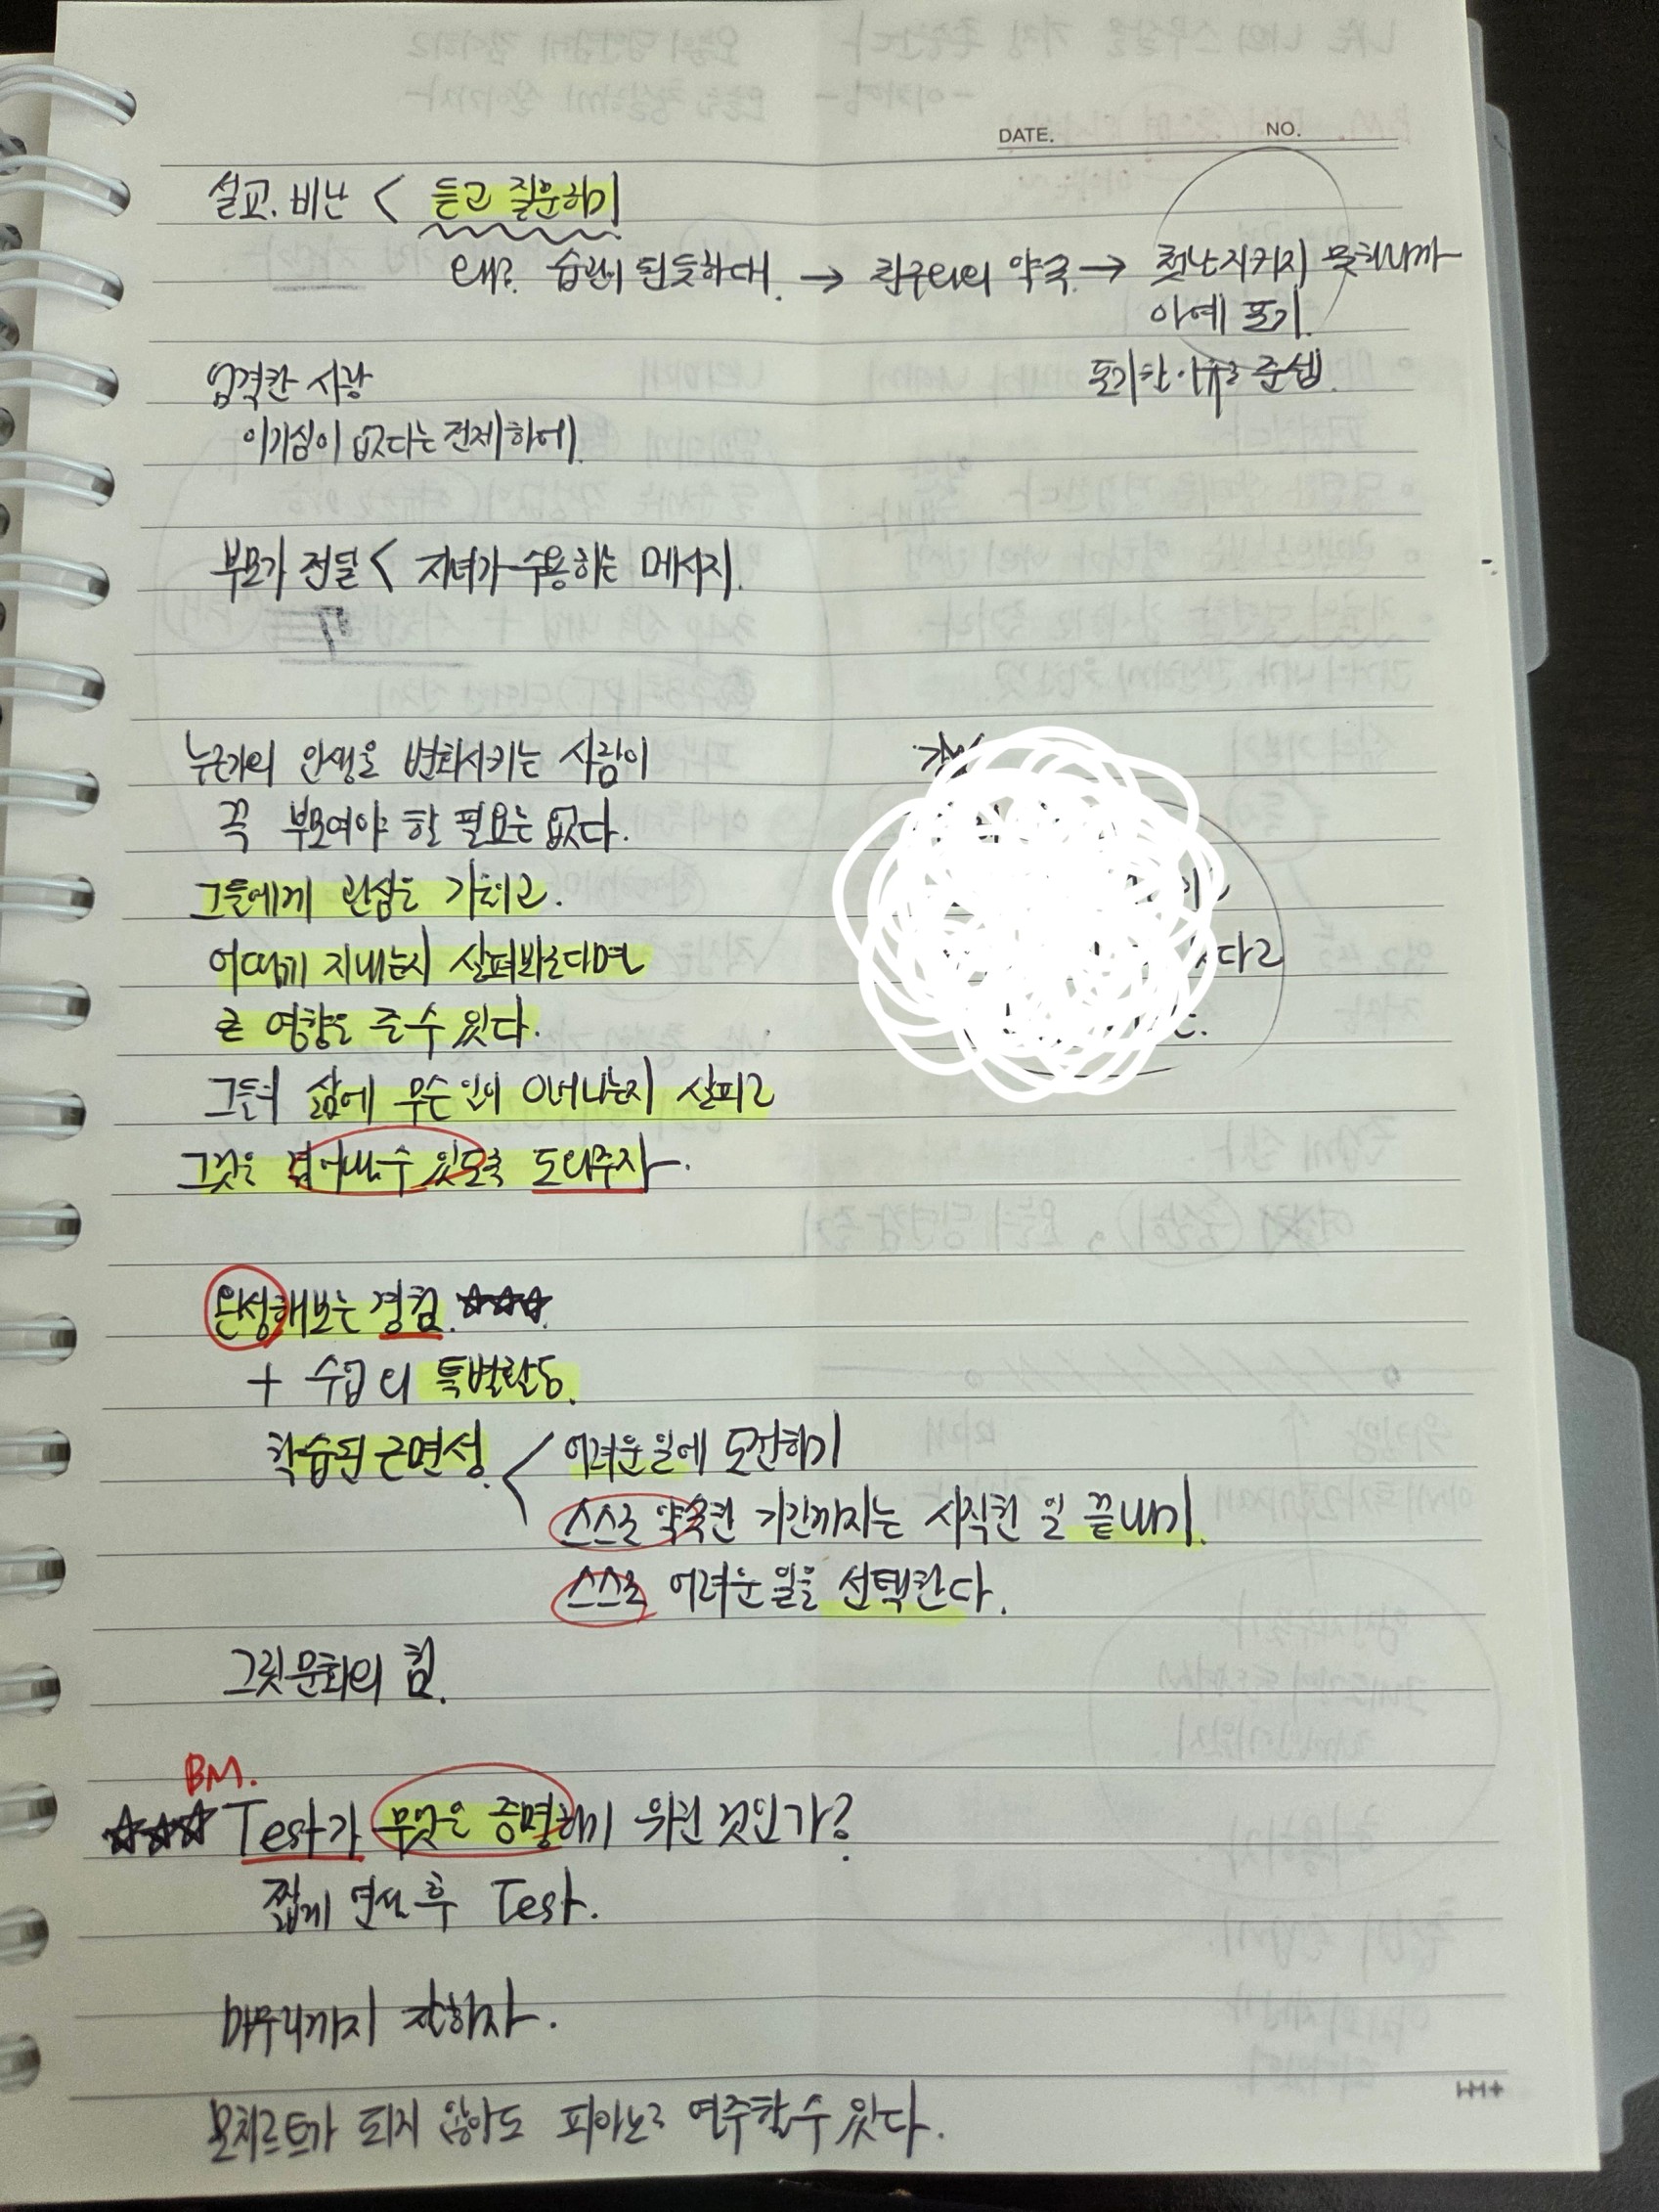 DATE. NO.
설교. 비난 < 듣고 질문하기
왜? 습관이 된듯하대. → 친구와의 약속. → 첫날 지키지 못하니까
아예 포기.
포기한 · 준셉.
엄격한 사랑
이기심이 없다는 전제하에.
부모가 전달 < 자녀가 수용하는 메시지.
누군가의 인생을 변화시키는 사람이
꼭 부모여야 할 필요는 없다.
그들에게 관심을 가지고.
어떻게 지내는지 살펴봐준다면
큰 영향을 줄 수 있다.
다고
그들의 삶에 무슨 일이 일어나는지 살피고
그것을 겪어낼 수 있도록 도와주자.
완성해보는 경험. ☆☆☆
+ 수업 외 특별활동.
학습된 근면성. < 어려운 일에 도전하기
스스로 약속한 기간까지는 시작한 일 끝내기.
스스로 어려운 일을 선택한다.
그릿 문화의 힘.
BM.
☆☆☆ Test가 무엇을 증명하기 위한 것인가?
짧게 연설 후 Test.
마무리까지 잘하자.
모차르트가 되지 않아도 피아노를 연주할 수 있다.